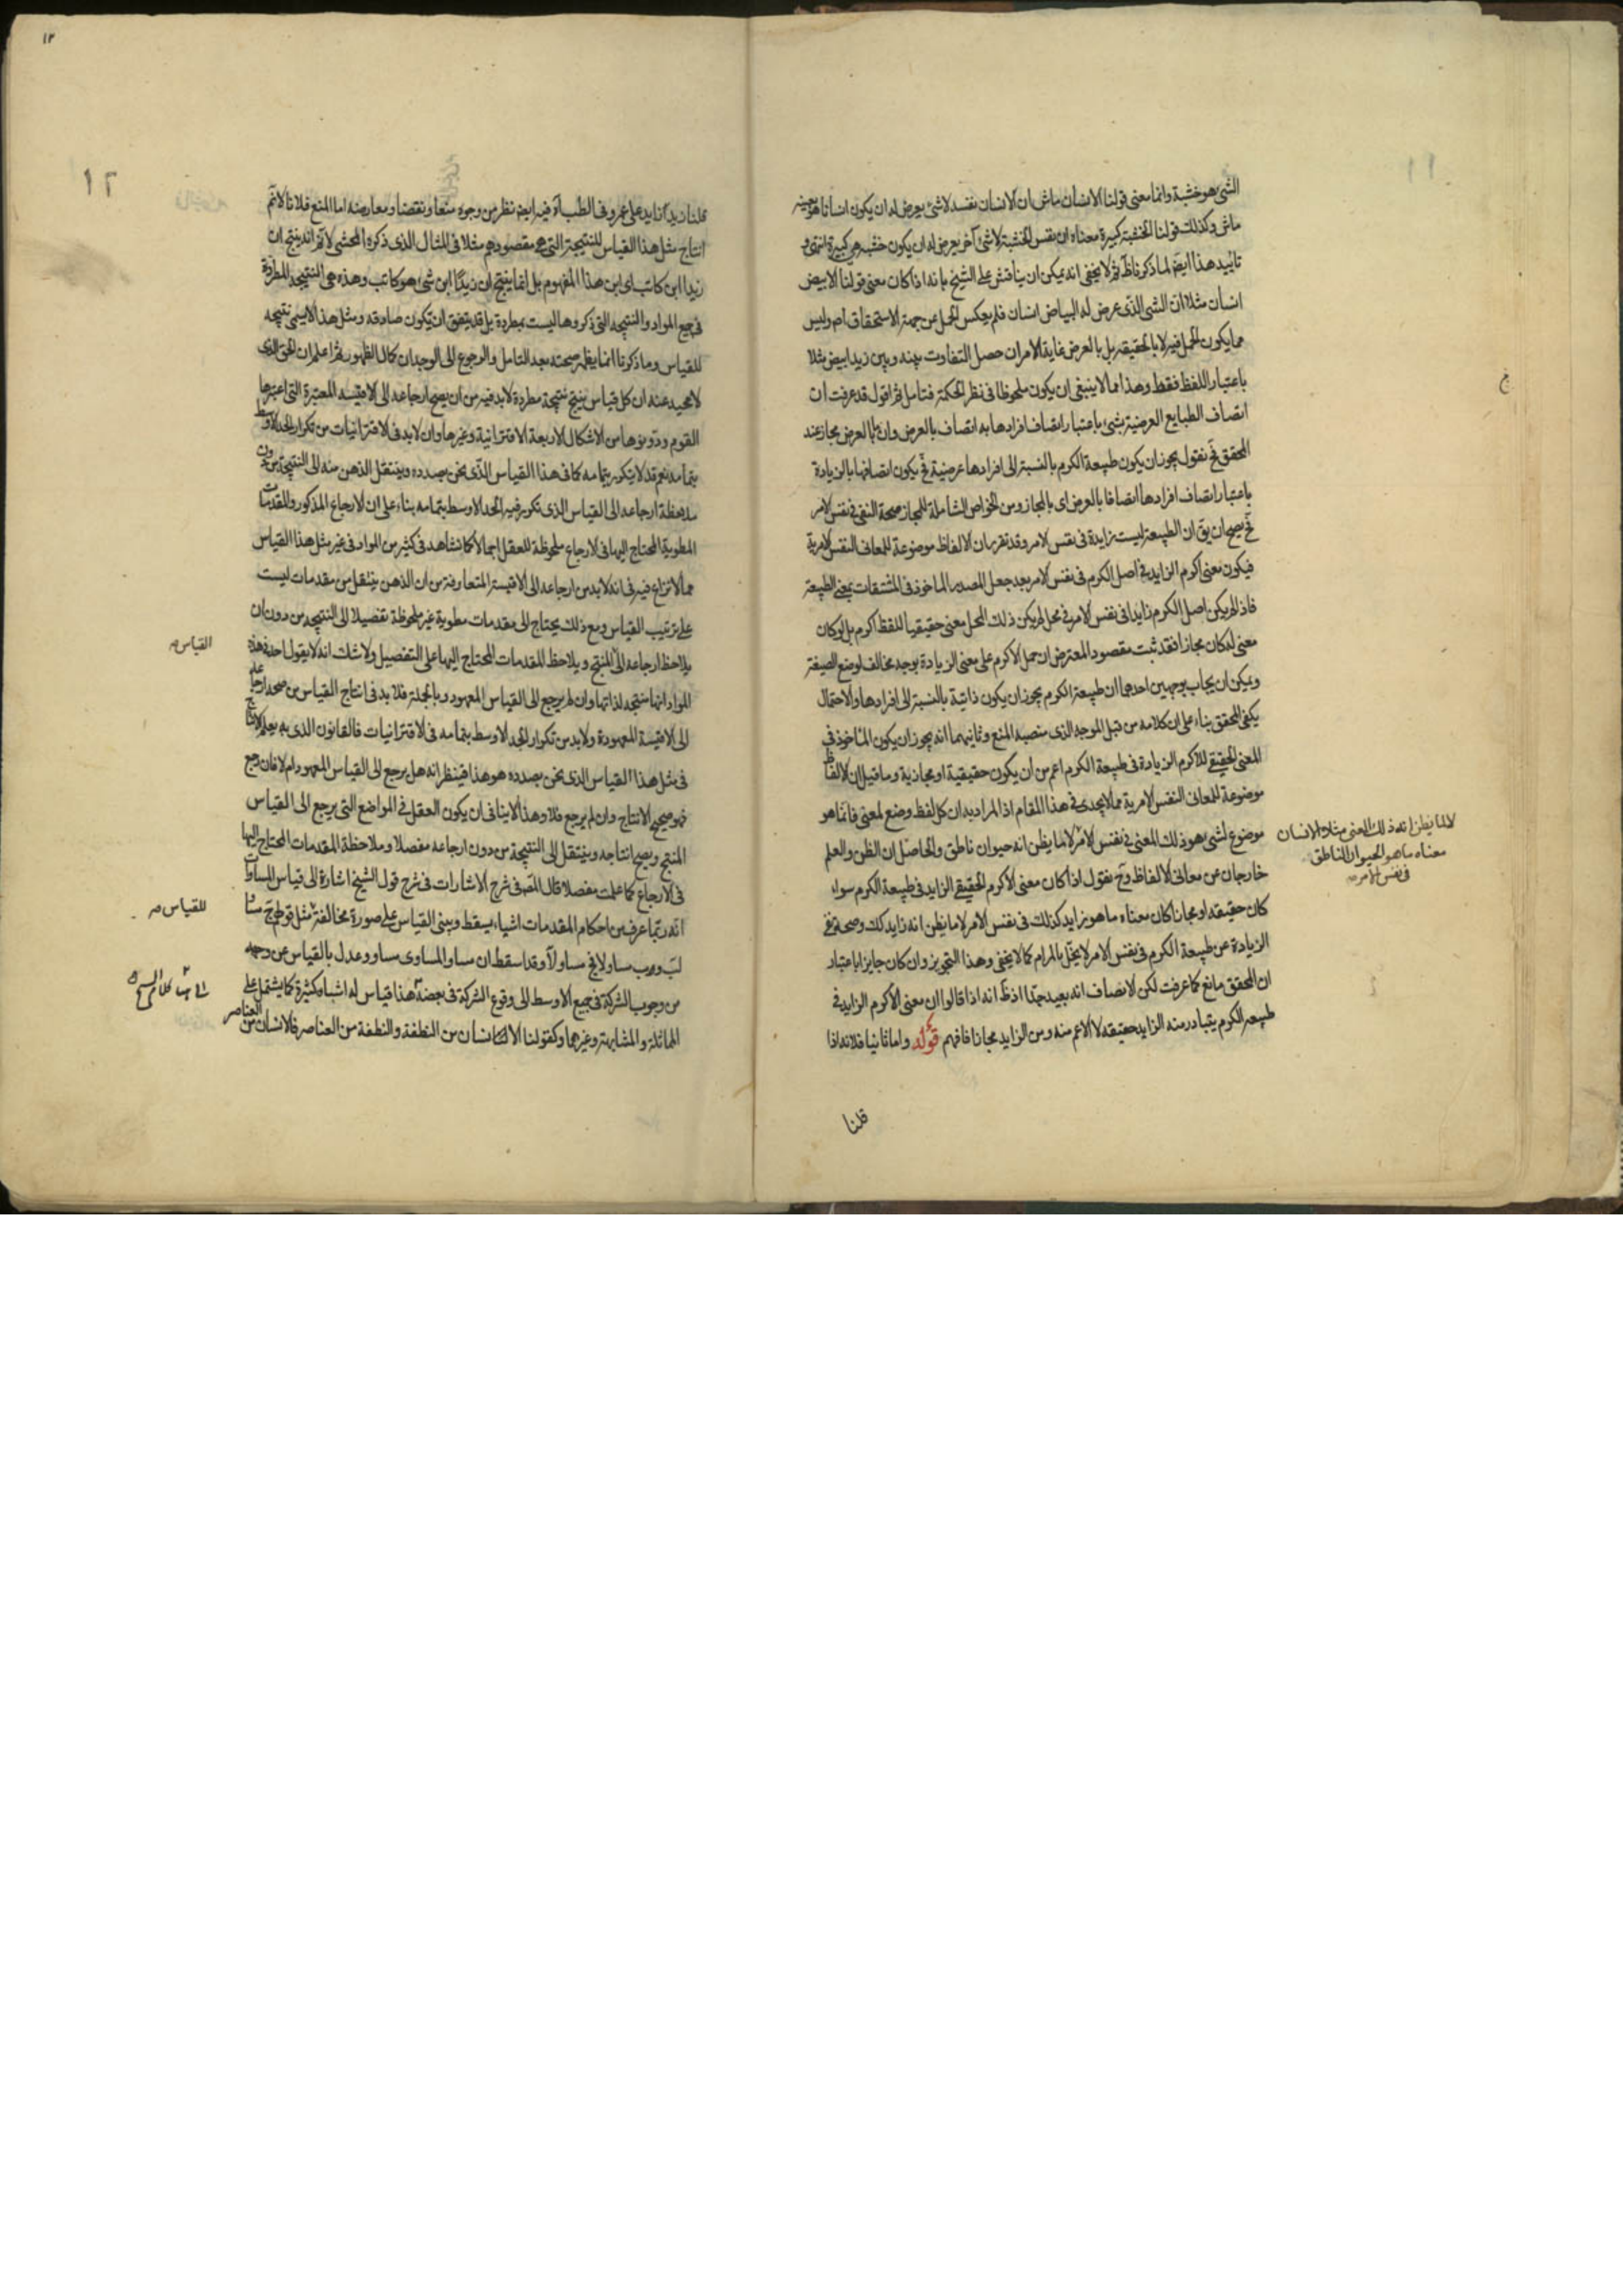 الشئ هو خشبة وانما معنى قولنا الانسان ماش ان الانسان نفسه لا شئ يعرض له ان يكون انسانا هو بعينه
ماش وكذلك قولنا الخشبة كبيرة معناه ان نفس الخشبة لا شئ آخر يعرض له ان يكون خشبة هي كبيرة انتهى و
تاييد هذا ايضا لما ذكرنا ظ ثم لا يخفى انه يمكن ان يناقش على الشيخ بانه اذا كان معنى قولنا الابيض
انسان مثلا ان الشئ الذى عرض له البياض انسان فلم يعكس الحمل عن جهة الاستحقاق ام وليس
مما يكون الحمل فيه لا بالحقيقه بل بالعرض غاية الامر ان حصل التفاوت بينه وبين زيد ابيض مثلا
باعتبار اللفظ فقط وهذا مما لا ينبغى ان يكون ملحوظا فى نظر الحكمة فتامل ثم اقول قد عرفت ان
اتصاف الطبايع العرضية بشئ باعتبار اتصاف افرادها به اتصاف بالعرض وان ما بالعرض مجاز عند
المحقق فح نقول يجوز ان يكون طبيعة الكرم بالنسبة الى افرادها عرضية فح يكون اتصافها بالزيادة
باعتبار اتصاف افرادها اتصافا بالعرض اى بالمجاز ومن الخواص الشاملة للمجاز صحة النفى فى نفس الامر
فح يصح ان يق ان الطبيعة ليست زايدة فى نفس الامر وقد تقرر ان الالفاظ موضوعة للمعانى النفس الامرية
فيكون معنى اكرم الزايد فى اصل الكرم فى نفس الامر بعد جعل المصدر الماخوذ فى المشتقات بمعنى الطبيعة
فاذا لم يكن اصل الكرم زايدا فى نفس الامر فى محل لم يكن ذلك المحل معنى حقيقيا للفظ اكرم بل لو كان
معنى له كان مجازا فقد ثبت مقصود المعترض ان حمل الاكرم على معنى الزيادة بوجه مخالف لوضع الصيغة
ويمكن ان يجاب بوجهين احدهما ان طبيعة الكرم يجوز ان يكون ذاتية بالنسبة الى افرادها والاحتمال
يكفى للمحقق بناء على ان كلامه من قبل الموجه الذى منصبه المنع وثانيهما انه يجوز ان يكون الماخوذ فى
المعنى الحقيقى للاكرم الزيادة فى طبيعة الكرم اعم من ان يكون حقيقية او مجازية وما قيل ان الالفاظ
موضوعة للمعانى النفس الامرية مما لا يجدى فى هذا المقام اذ المراد به ان كل لفظ وضع لمعنى فانما هو
موضوع لشئ هو ذلك المعنى فى نفس الامر لا ما يظن انه حيوان ناطق والحاصل ان الظن والعلم
لا لما يظن انه ذلك المعنى مثلا الانسان
معناه ما هو الحيوان الناطق
فى نفس الامر صح
خارجان عن معانى الالفاظ وح نقول اذا كان معنى الاكرم الحقيقى الزايد فى طبيعة الكرم سواء
كان حقيقة او مجازا كان معناه ما هو زايد كذلك فى نفس الامر لا ما يظن انه زايد كذلك وصحة نفى
الزيادة عن طبيعة الكرم فى نفس الامر لا يخل بالمرام كما لا يخفى وهذا التجويز وان كان جايزا باعتبار
ان المحقق مانع كما عرفت لكن الانصاف انه بعيد جدا اذ ظ انه اذا قالوا ان معنى الاكرم الزايد فى
طبيعه الكرم يتبادر منه الزايد حقيقه لا الاعم منه ومن الزايد مجازا فافهم قوله واما ثانيا فلانه اذا
قلنا
١٢
قلنا زيد ازيد على عمرو فى الطب آه فيه ايضا نظر من وجوه منعا ونقضا ومعارضه اما المنع فلانا لا نم
انتاج مثل هذا القياس للنتيجة التى هى مقصودهم مثلا فى المثال الذى ذكره المحشى لا نم انه ينتج ان
زيدا ابن كاتب اى ابن هذا المفهوم بل انما ينتج ان زيدا ابن شئ هو كاتب وهذه هى النتيجة المطردة
فى جميع المواد والنتيجه التى ذكروها ليست بمطردة بل قد يتفق ان تكون صادقه ومثل هذا لا يسمى نتيجه
للقياس وما ذكرنا انما يظهر صحته بعد التامل والرجوع الى الوجدان كمال الظهور ثم اعلم ان الحق الذى
لا محيد عنه ان كل قياس ينتج نتيجة مطردة لا بد فيه من ان يصح ارجاعه الى الاقيسه المعتبرة التى اعتبرها
القوم ودونوها من الاشكال الاربعة الاقترانية وغيرها وان لا بد فى الاقترانيات من تكرار الحد الاوسط
بتمامه نعم قد لا يتكرر بتمامه كما فى هذا القياس الذى نحن بصدده وينتقل الذهن منه الى النتيجة من دون
ملاحظة ارجاعه الى القياس الذى تكرر فيه الحد الاوسط بتمامه بناء على ان الارجاع المذكور والمقدمات
المطوية المحتاج اليها فى الارجاع ملحوظة للعقل اجمالا كما نشاهد فى كثير من المواد فى غير مثل هذا القياس
مما لا نزاع فيه فى انه لا بد من ارجاعه الى الاقيسة المتعارفة من ان الذهن ينتقل من مقدمات ليست
على ترتيب القياس ومع ذلك يحتاج الى مقدمات مطوية غير ملحوظة تفصيلا الى النتيجه من دون ان
يلاحظ ارجاعه الى المنتج ويلاحظ المقدمات المحتاج اليها على التفصيل ولا شك انه لا يقول احد فى هذه
القياس صح
المواد انها منتجه لذاتها وان لم يرجع الى القياس المعهود وبالجملة فلا بد فى انتاج القياس من صحه ارجاعه
الى الاقيسة المعهودة ولا بد من تكرار الحد الاوسط بتمامه فى الاقترانيات فالقانون الذى به يعلم الانتاج
فى مثل هذا القياس الذى نحن بصدده هو هذا فينظر انه هل يرجع الى القياس المعهود ام لا فان رجع
فهو صحيح الانتاج وان لم يرجع فلا وهذا لا ينافى ان يكون العقل فى المواضع التى يرجع الى القياس
المنتج ويصح انتاجه وينتقل الى النتيجة من دون ارجاعه مفصلا وملاحظة المقدمات المحتاج اليها
فى الارجاع كما علمت مفصلا قال المصنف فى شرح الاشارات فى شرح قول الشيخ اشارة الى قياس المساواة
انه ربما عرف من احكام المقدمات اشياء يسقط ويبنى القياس على صورة مخالفة مثل قولهم ج مساو
للقياس صح
لب وب مساو لا فج مساو لا وقد اسقط ان مساو المساوى مساو وعدل بالقياس عن وجهه
من وجوب الشركة فى جميع الاوسط الى وقوع الشركة فى بعضه هذا قياس له اشباه كثيرة كما يشتمل على
المماثلة والمشابهة وغيرهما وكقولنا الانسان من النطفة والنطفة من العناصر فالانسان من العناصر